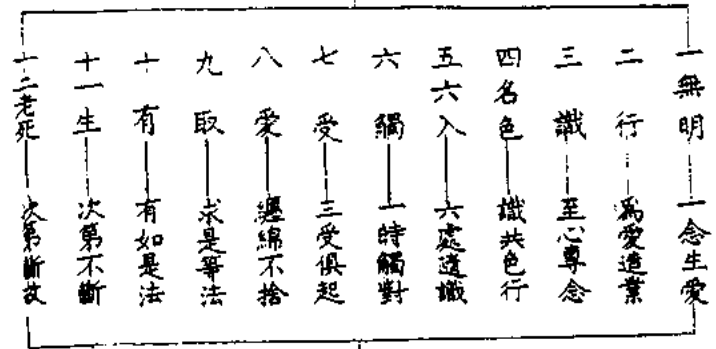 一無明 一念生愛
二行 為愛造業
三識 至心專念
四名色 識共色行
五六入 六處遺識
六觸 一時觸對
七受 三受俱起
八愛 纏綿不捨
九取 求是等法
十有 有如是法
十一生 次第不斷
十二老死 次第斷故